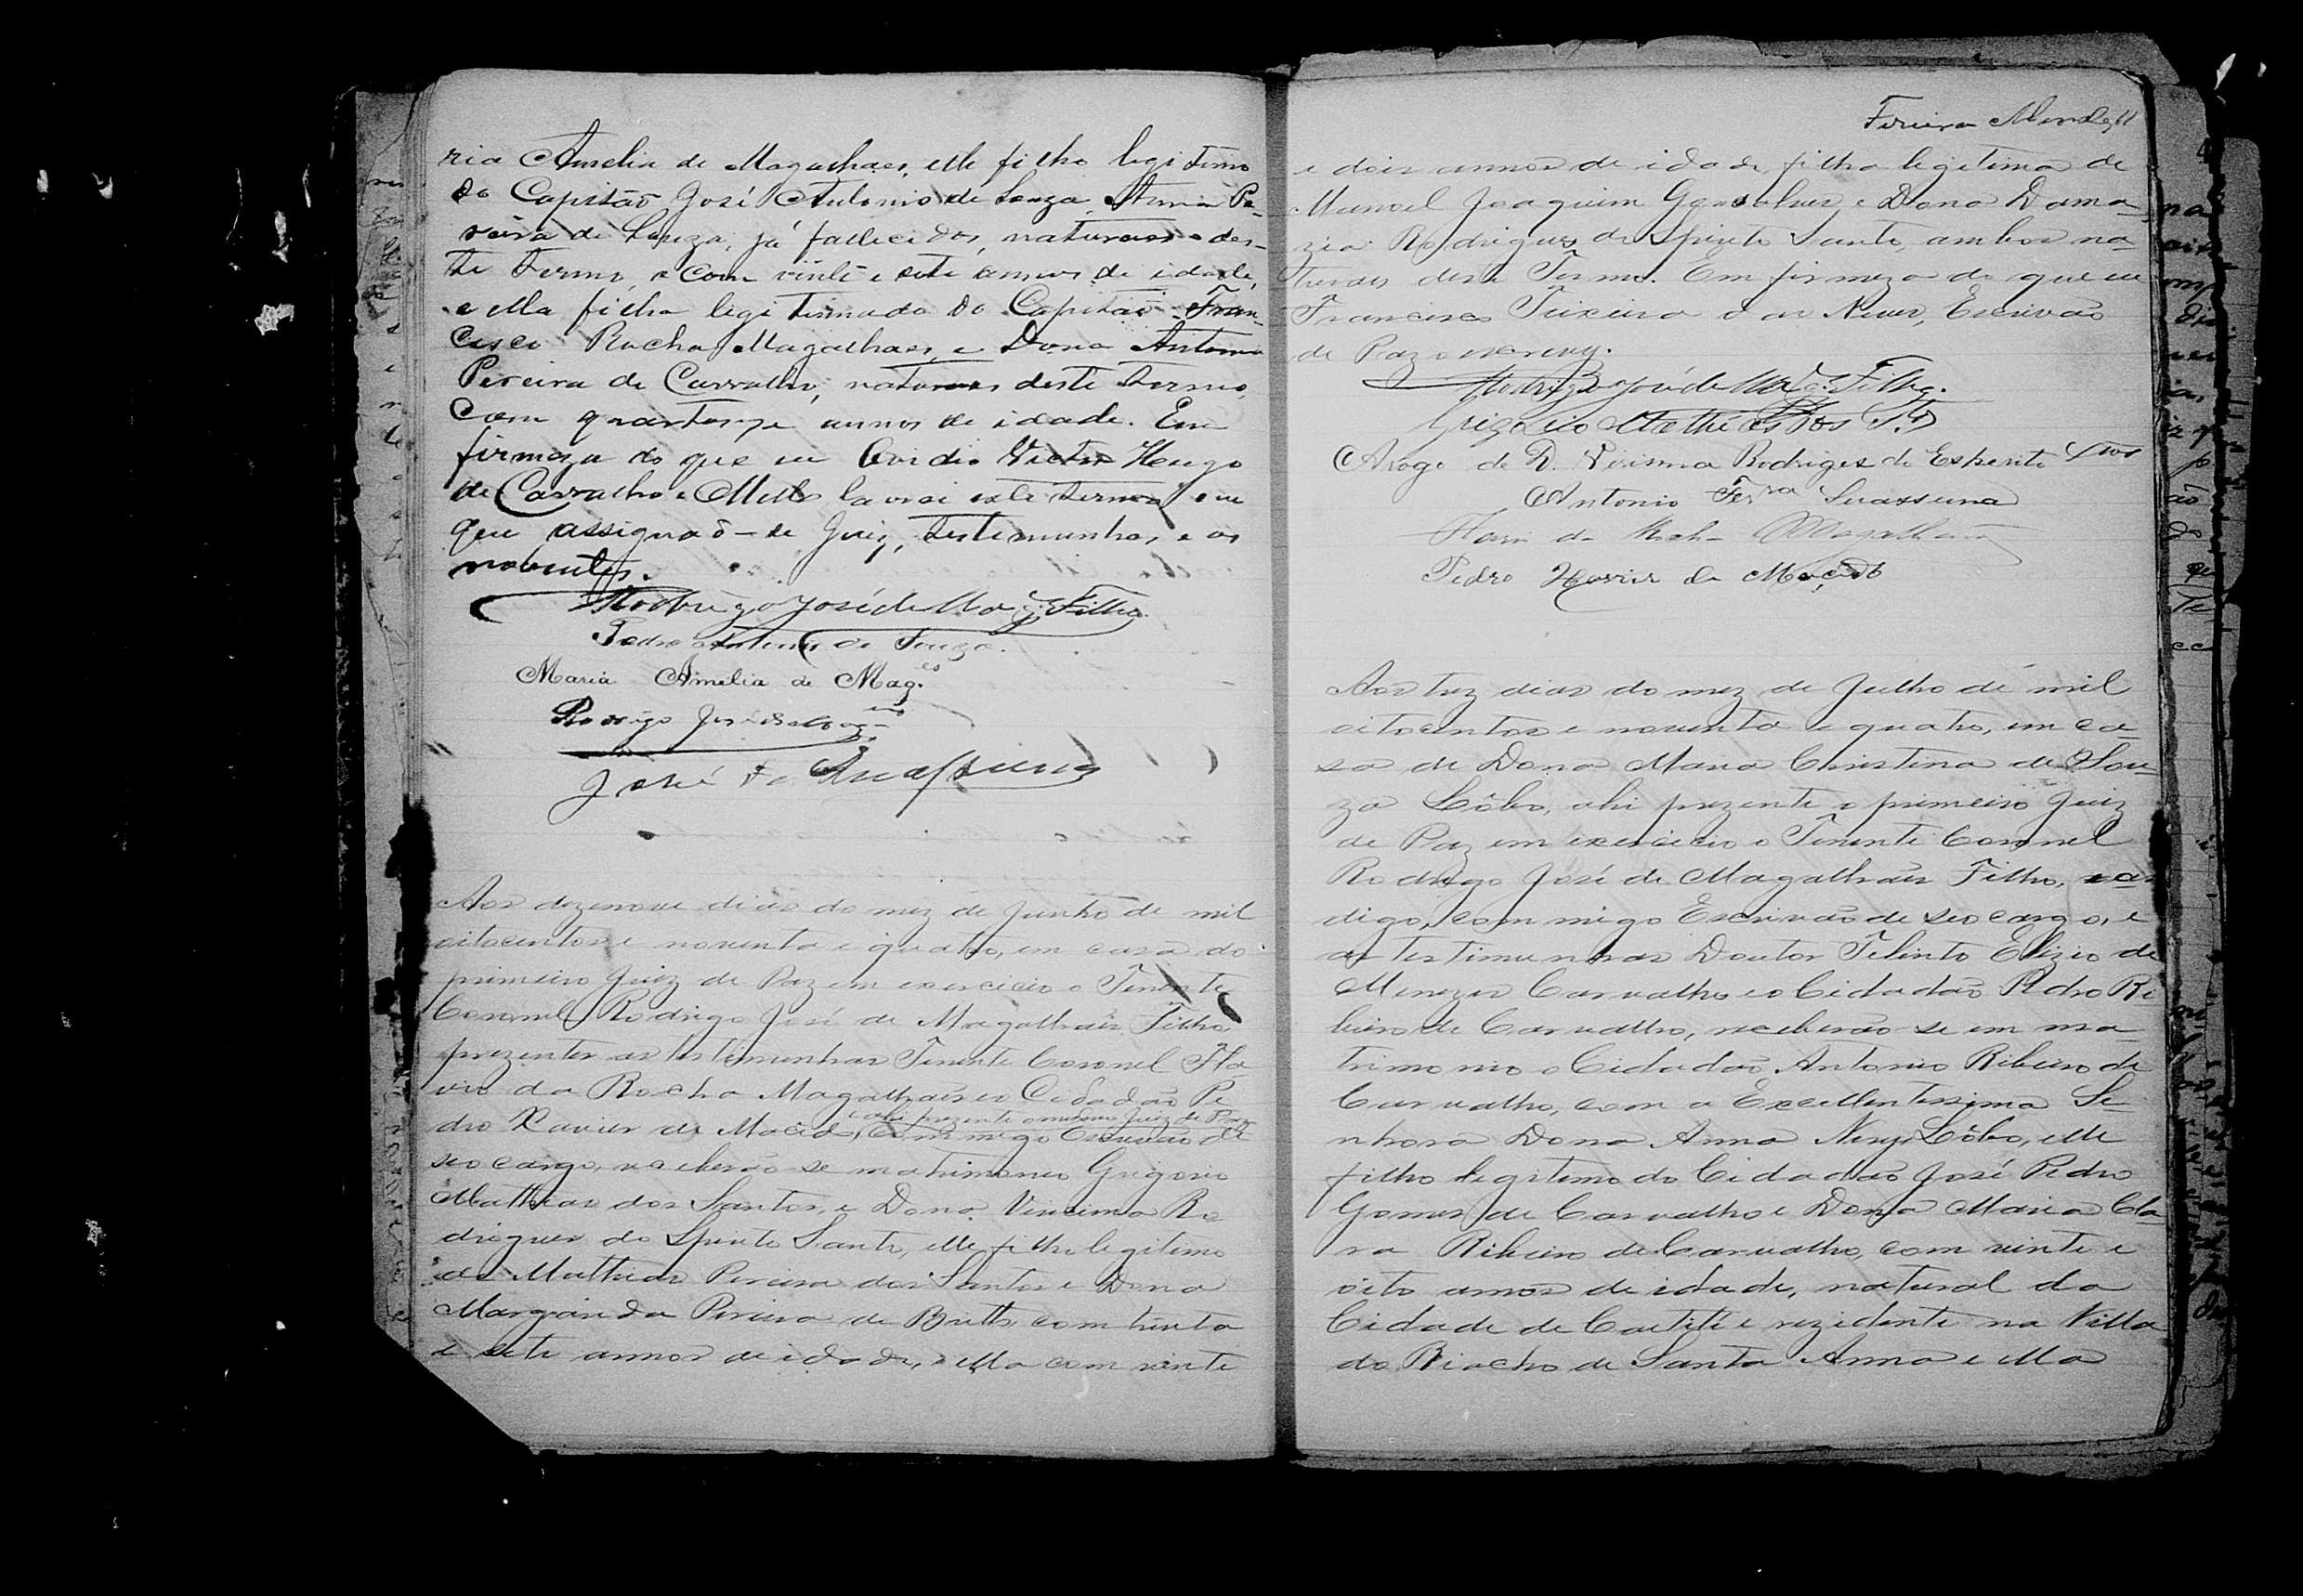 ria Amelia de Magalhaes, elle filho legitimo
do Capitaõ José Antonio de Souza, Anna Pe-
reira de Souza, já fallecidos, naturaes des-
te termo, e com vinte e sete annos de idade,
e ella filha legitimada do Capitaõ Fran-
cisco Rocha Magalhaes, e Dona Antonia
Pereira de Carvalho, naturaes deste termo,
com quartorze annos de idade. Em
firmeza do que eu Ovidio Victor Hugo
de Carvalho e Mello lavrei este termo em
que assignaõ-se Juiz, testemunhas, e os
nubentes.
Rodrigo José de Mag. Filho.
Pedro Antonio de Souza.
Maria Amelia de Mag.es
Rodrigo José de
José
Aos dezenove dias do mez de Junho de mil
oitocentos e noventa e quatro, em casa do
primeiro Juiz de Paz em exercicio o Tenente
Coronel Rodrigo José de Magalhães Filho,
prezentes as testimunhas Tenente Coronel Fla
vio da Rocha Magalhães e o Cidadão Pe
e ahi prezente o mesmo Juiz de Paz
dro Xavier de Macêdo, commigo Escrivão de
seo cargo, receberão-se matrimonio Grigorio
Mathias dos Santos, e Dona Virisima Ro
drigues do Spirito Santo, elle filho legitimo
de Mathias Pereira dos Santos e Dona
Margarida Pereira de Britto, com trinta
e sete annos de idade, e ella com vinte
Fereira Mendes
e dois annos de idade, filha legitima de
Manoel Joaquim Gonsalves e Dona Dama
zia Rodrigues do Spirito Santo, ambos na-
turaes deste Termo. Em firmeza do que eu
Francisco Teixeira das Neves, Escrivão
de Paz o escrevy.
Rodrigo José de Mag. Filho.
Grigorio Mathias dos
Arogo de D. Virisima Rodriges do Esperito
Antonio Ferra Suassuna
Flavio da Rocha Magalhães
Pedro Xavier de Macêdo
Aos trez dias do mez de Julho de mil
oitocentos e noventa e quatro, em ca-
sa de Dona Maria Christina de Sou-
za Lôbo, ahi prezente o primeiro Juiz
de Paz em exercicio o Tenente Coronel
Rodrigo José de Magalhães Filho,
digo, commigo Escrivão de seo cargo, e
as testimunhas Doutor Filinto Elizio de
Menezes Carvalho e o Cidadão Pedro Ri
beiro de Carvalho, receberão-se em ma-
trimonio o Cidadão Antonio Ribeiro de
Carvalho, com a Excellentissima Se-
nhora Dona Anna Nery Lôbo, elle
filho legitimo do Cidadão José Pedro
Gomes de Carvalho e Dona Maria Cla-
ra Ribeiro de Carvalho, com vinte e
oito annos de idade, natural da
Cidade de Caetité e rezidente na Villa
do Riacho de Santa Anna e ella